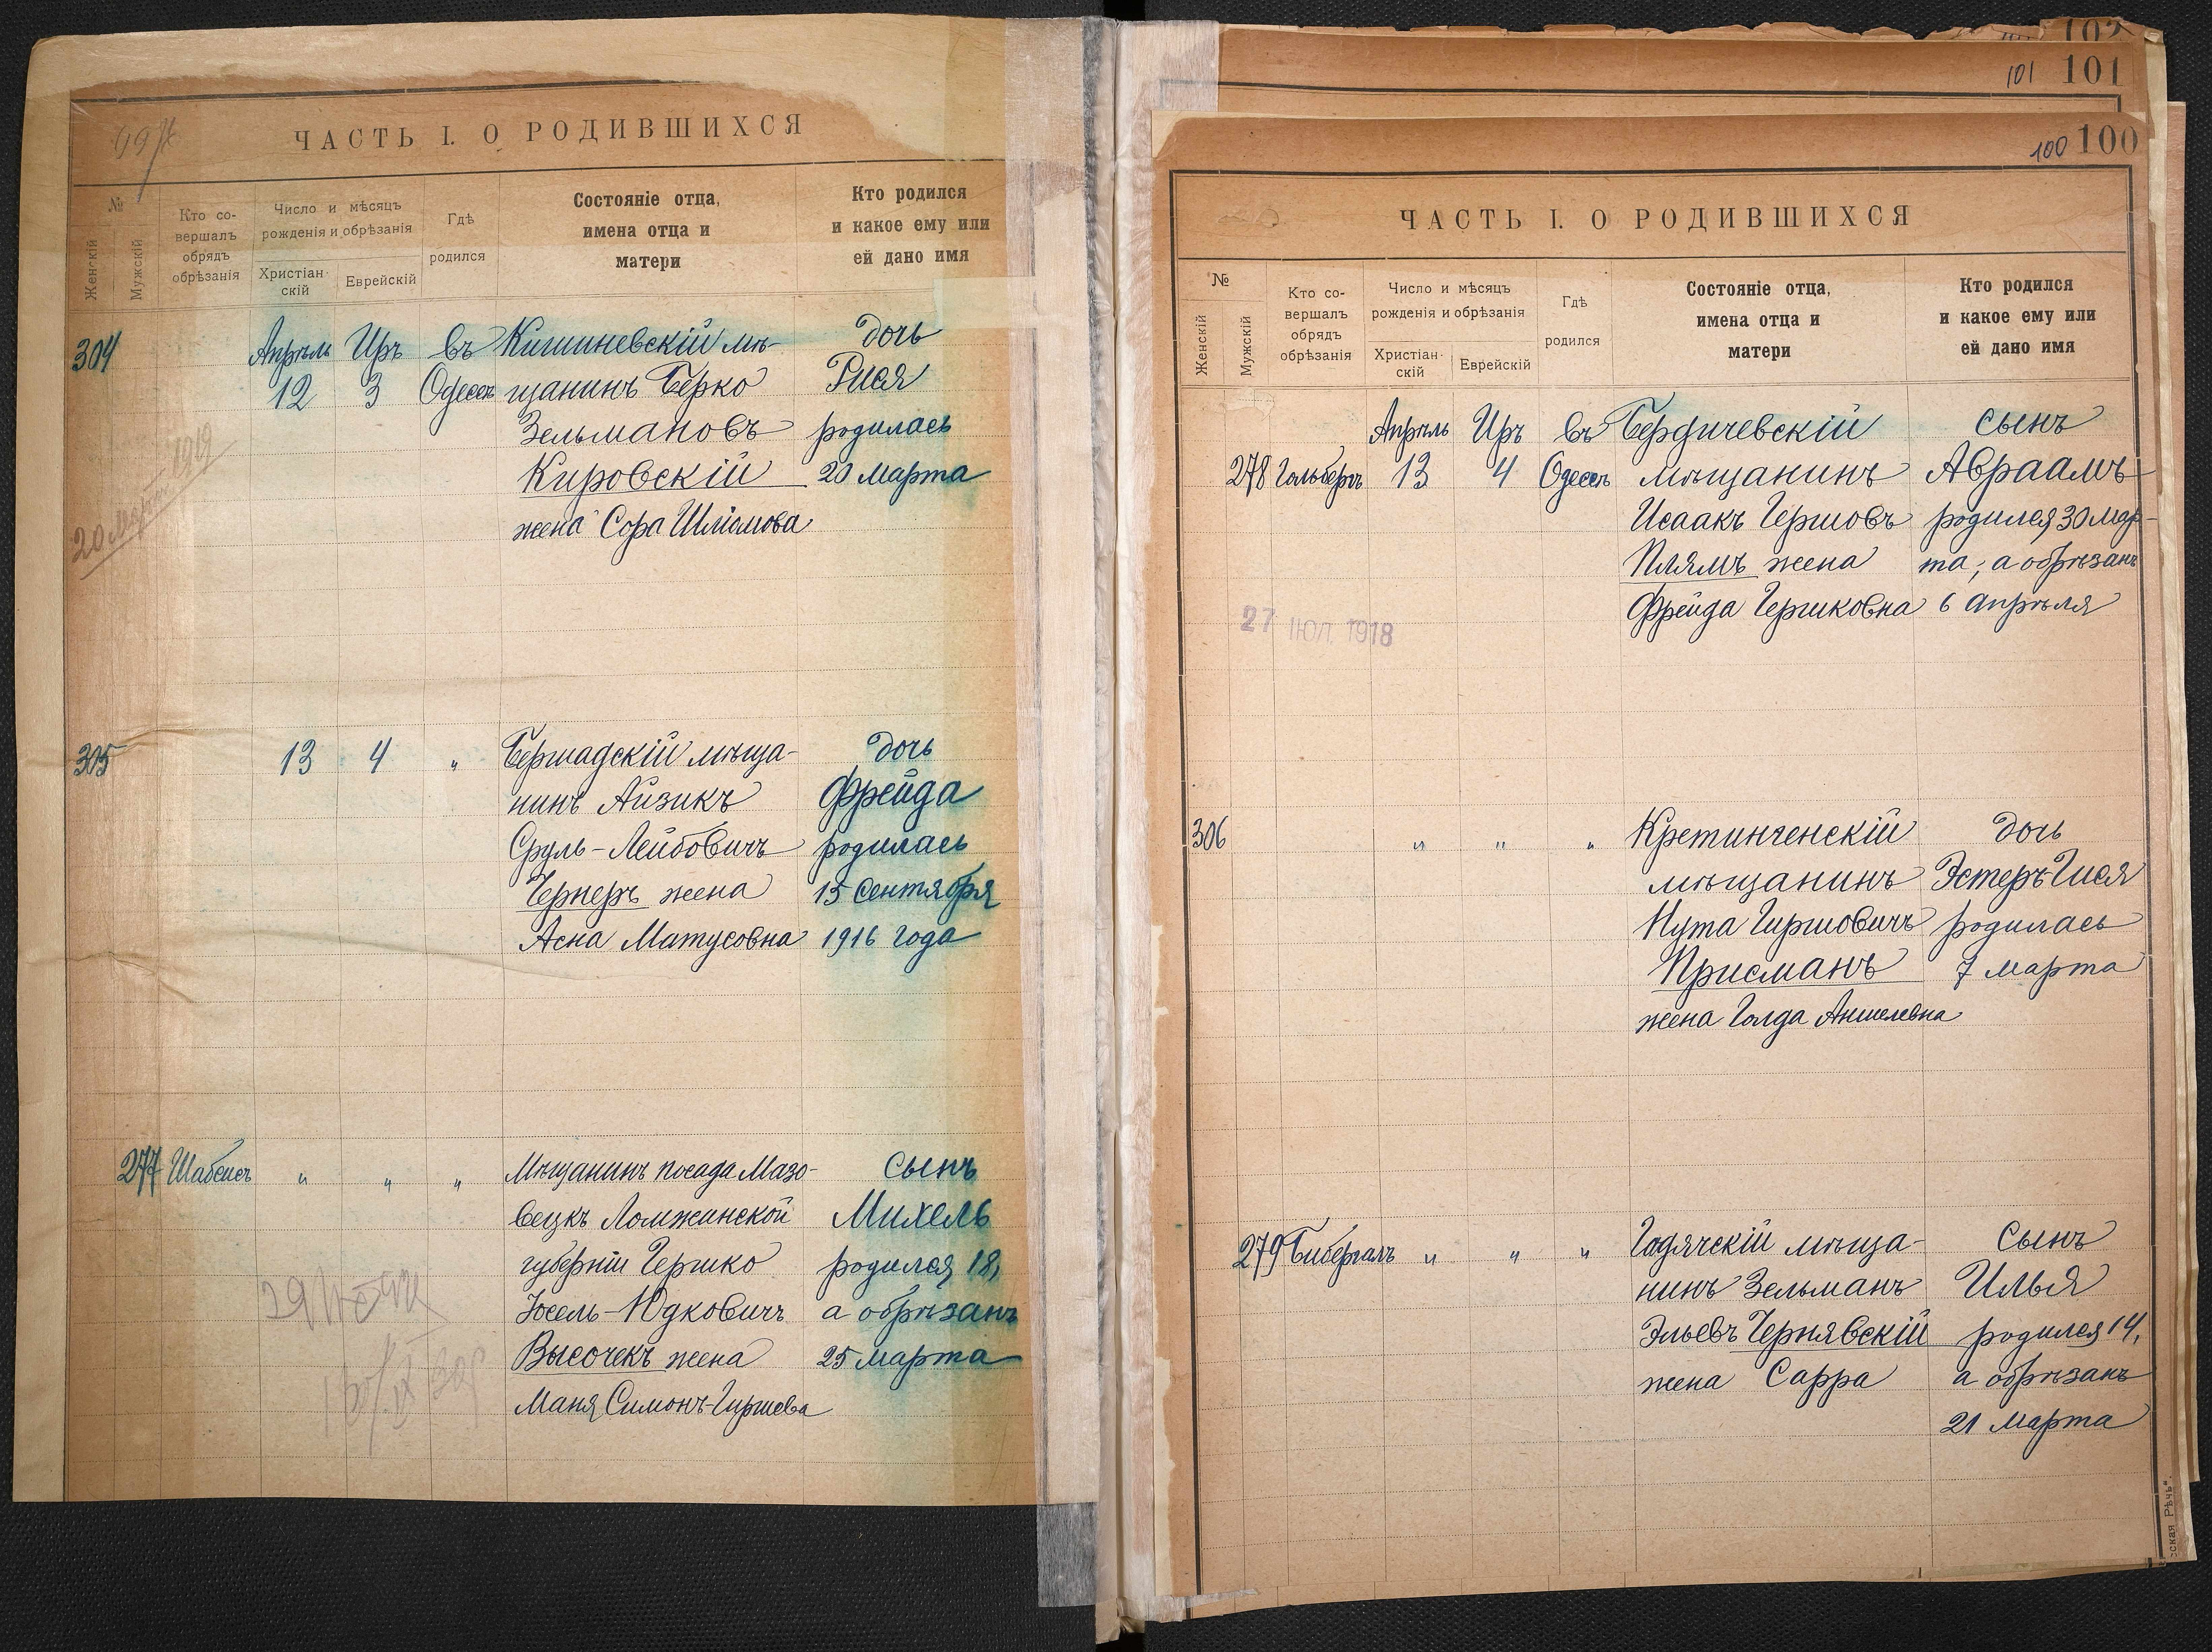 ЧАСТЬ I. О РОДИВШИХСЯ
№
Женскій
Мужскій
Кто со-
вершалъ
обрядъ
обрѣзанія
Число и мѣсяцъ
рожденія и обрѣзанія
Христіан-
скій
Еврейскій
Гдѣ
родился
Состояніе отца,
имена отца и
матери
Кто родился
и какое ему или
ей дано имя
304 Апрѣль Иръ въ Кишиневскій мѣ- дочь
12 3 Одессѣ щанинъ Берко Рися
Зельмановъ родилась
Кировскій 20 марта
жена Сора Шліомова
20 Марта 1919
305 13 4 „ Бершадскій мѣща- дочь
нинъ Айзикъ Фрейда
Сруль-Лейбовичъ родилась
Чернеръ жена 15 сентября
Асна Матусовна 1916 года
277 Шабсисъ „ „ „ Мѣщанинъ посада Мазо- сынъ
вецкъ Ломжинской Михель
губерніи Гершко родился 18,
Іосель-Юдковичъ а обрѣзанъ
Высочекъ жена 25 марта
Маня Симонъ-Гиршева
102
101 101
100 100
ЧАСТЬ I. О РОДИВШИХСЯ
№
Женскій
Мужскій
Кто со-
вершалъ
обрядъ
обрѣзанія
Число и мѣсяцъ
рожденія и обрѣзанія
Христіан-
скій
Еврейскій
Гдѣ
родился
Состояніе отца,
имена отца и
матери
Кто родился
и какое ему или
ей дано имя
Апрѣль Иръ въ Бердичевскій сынъ
278 Гольбергъ 13 4 Одессѣ мѣщанинъ Авраамъ
Исаакъ Гершовъ родился 30 мар-
Плямъ жена та, а обрѣзанъ
Фрейда Гершковна 6 апрѣля
27 ІЮЛ. 1918
306 „ „ „ Кретингенскій дочь
мѣщанинъ Эстеръ-Гися
Нута Гиршовичъ родилась
Присманъ 7 марта
жена Голда Аншелевна
279 Бибергалъ „ „ „ Гадячскій мѣща- сынъ
нинъ Зельманъ Илья
Эльевъ Чернявскій родился 14,
жена Сарра а обрѣзанъ
21 марта
сская Рѣчь".